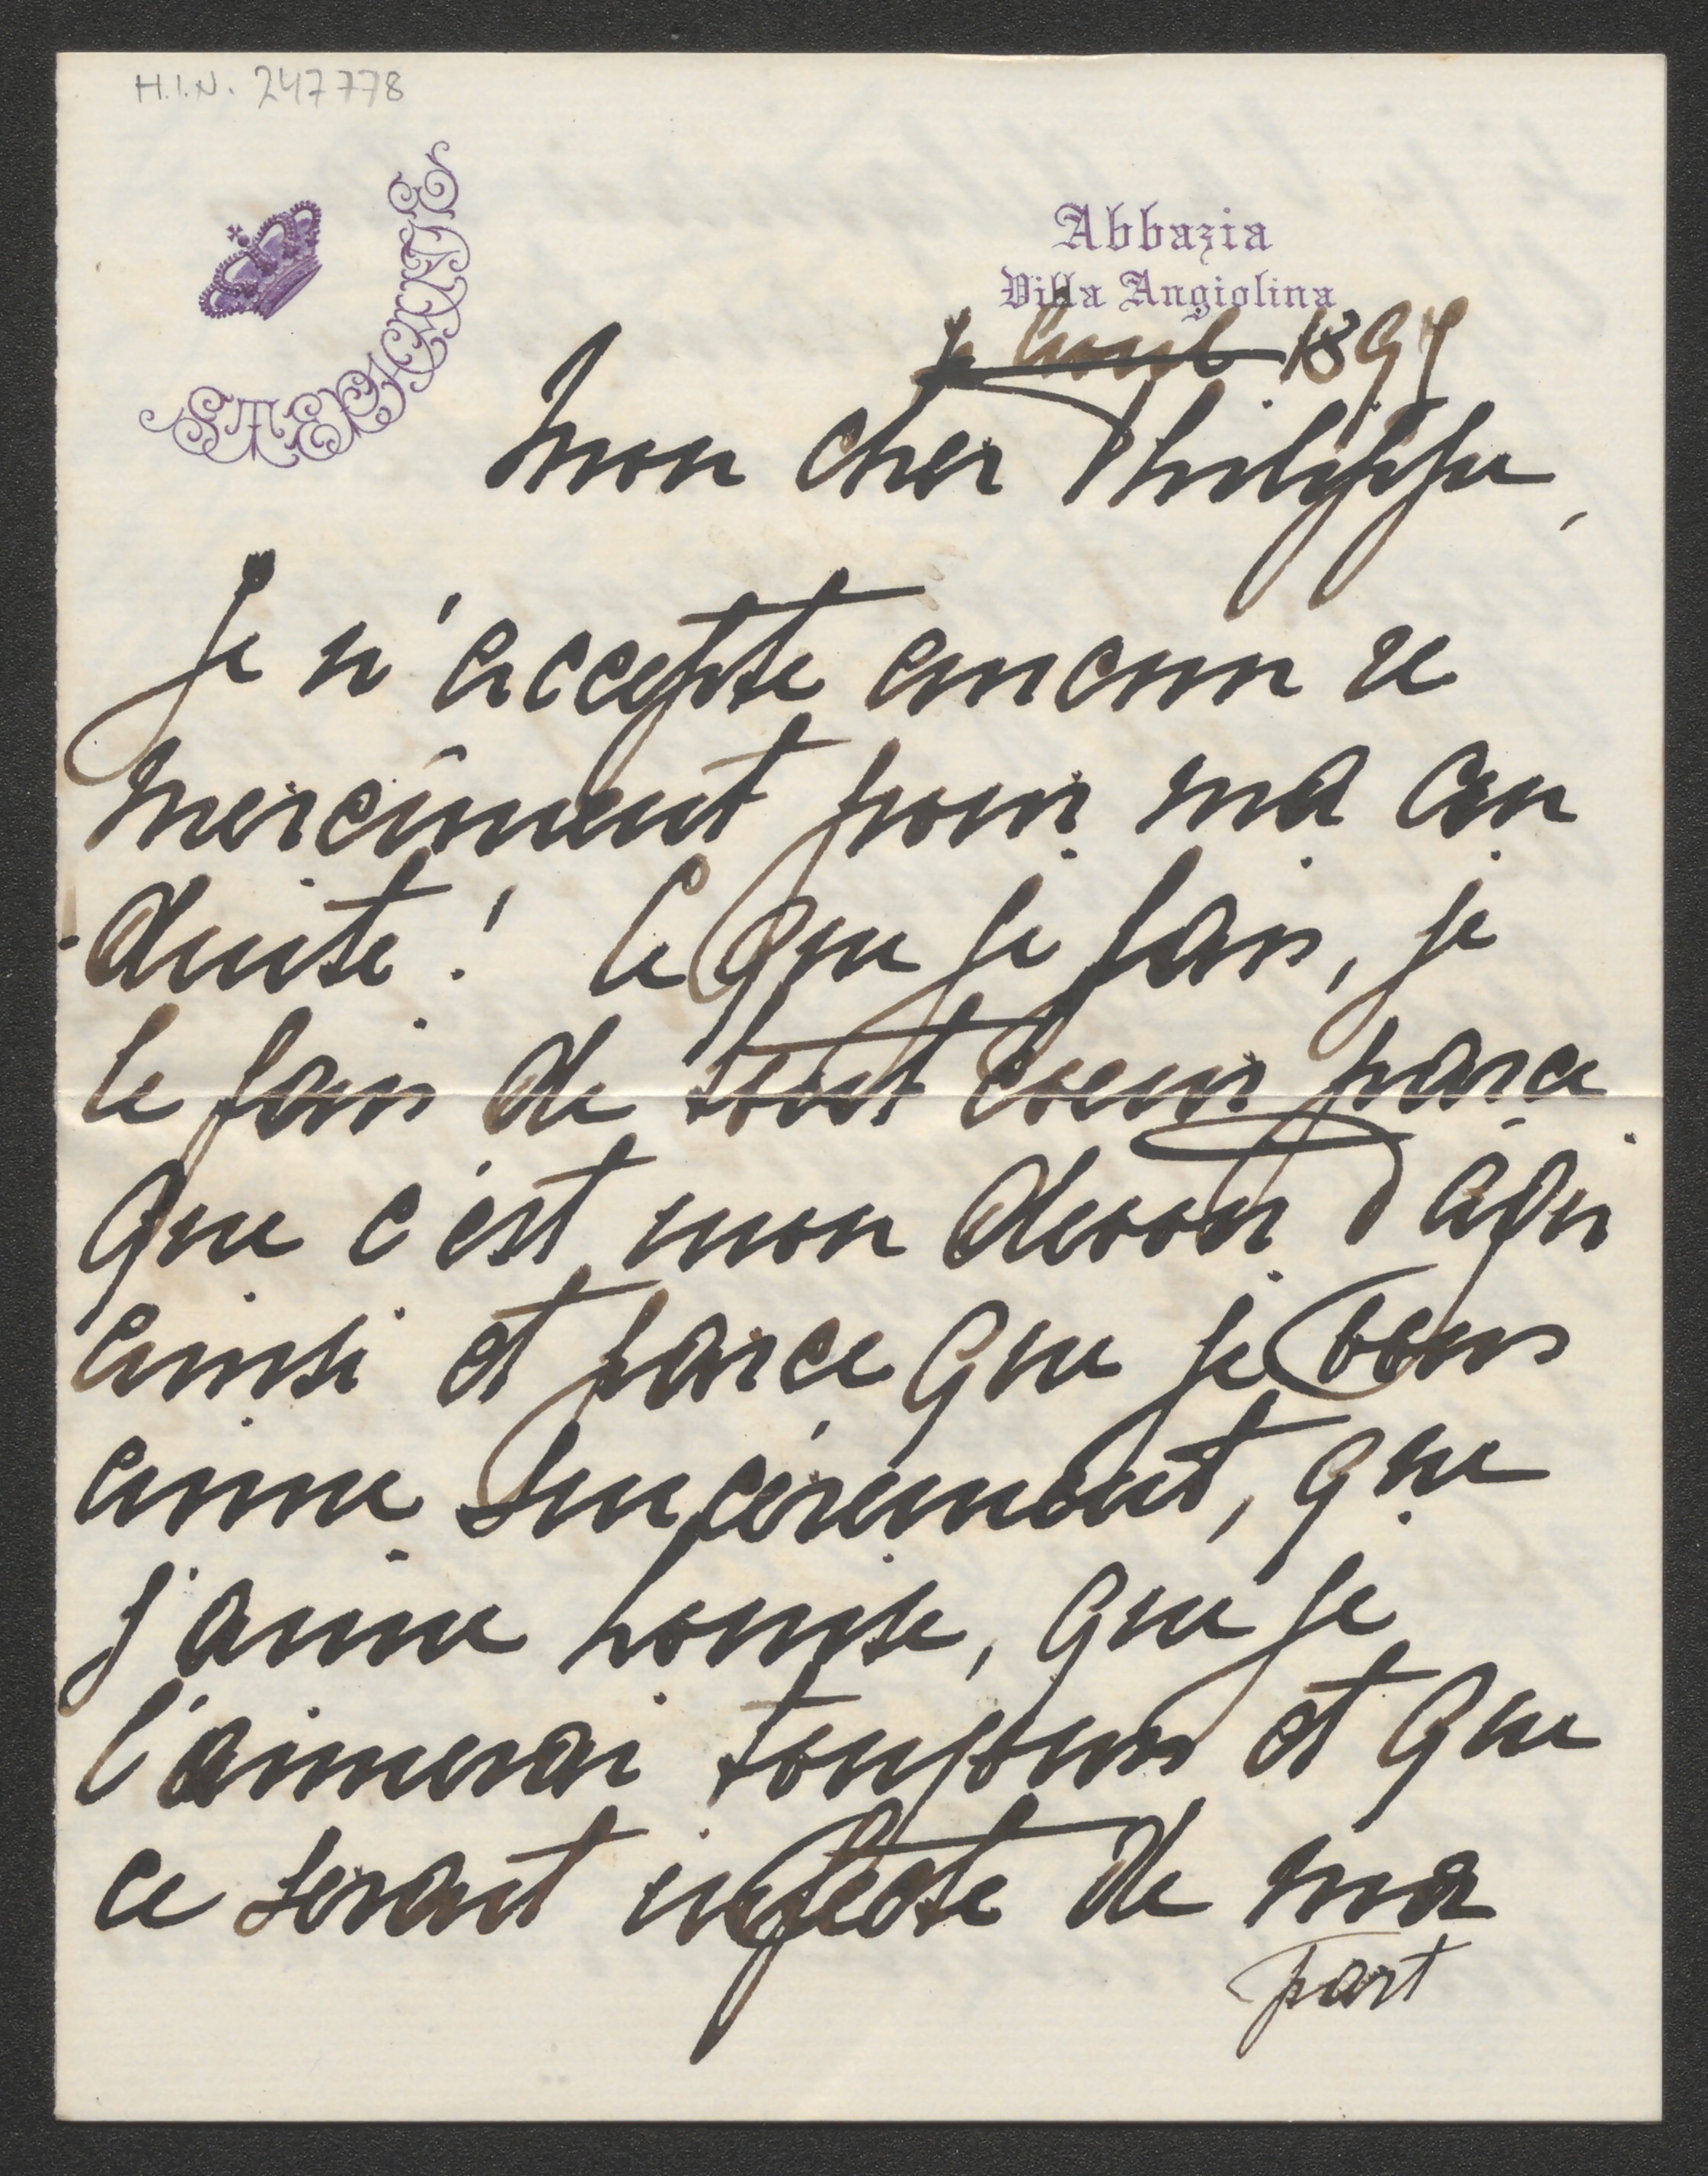 H.I.N. 247778
STEPHANIE
Abbazia
Villa Angiolina
4 Avril 1897
Mon cher Philippe,
Je n'accepte aucun re
mercîment pour ma con
duite! Ce que je fais, je
le fais de tout coeur parce
que c'est mon devoir d'agir
ainsi et parce que je vous
aime sincérement, que
j'aime Louise, que je
l'aimerai toujours et que
ce serait infecte de ma
part